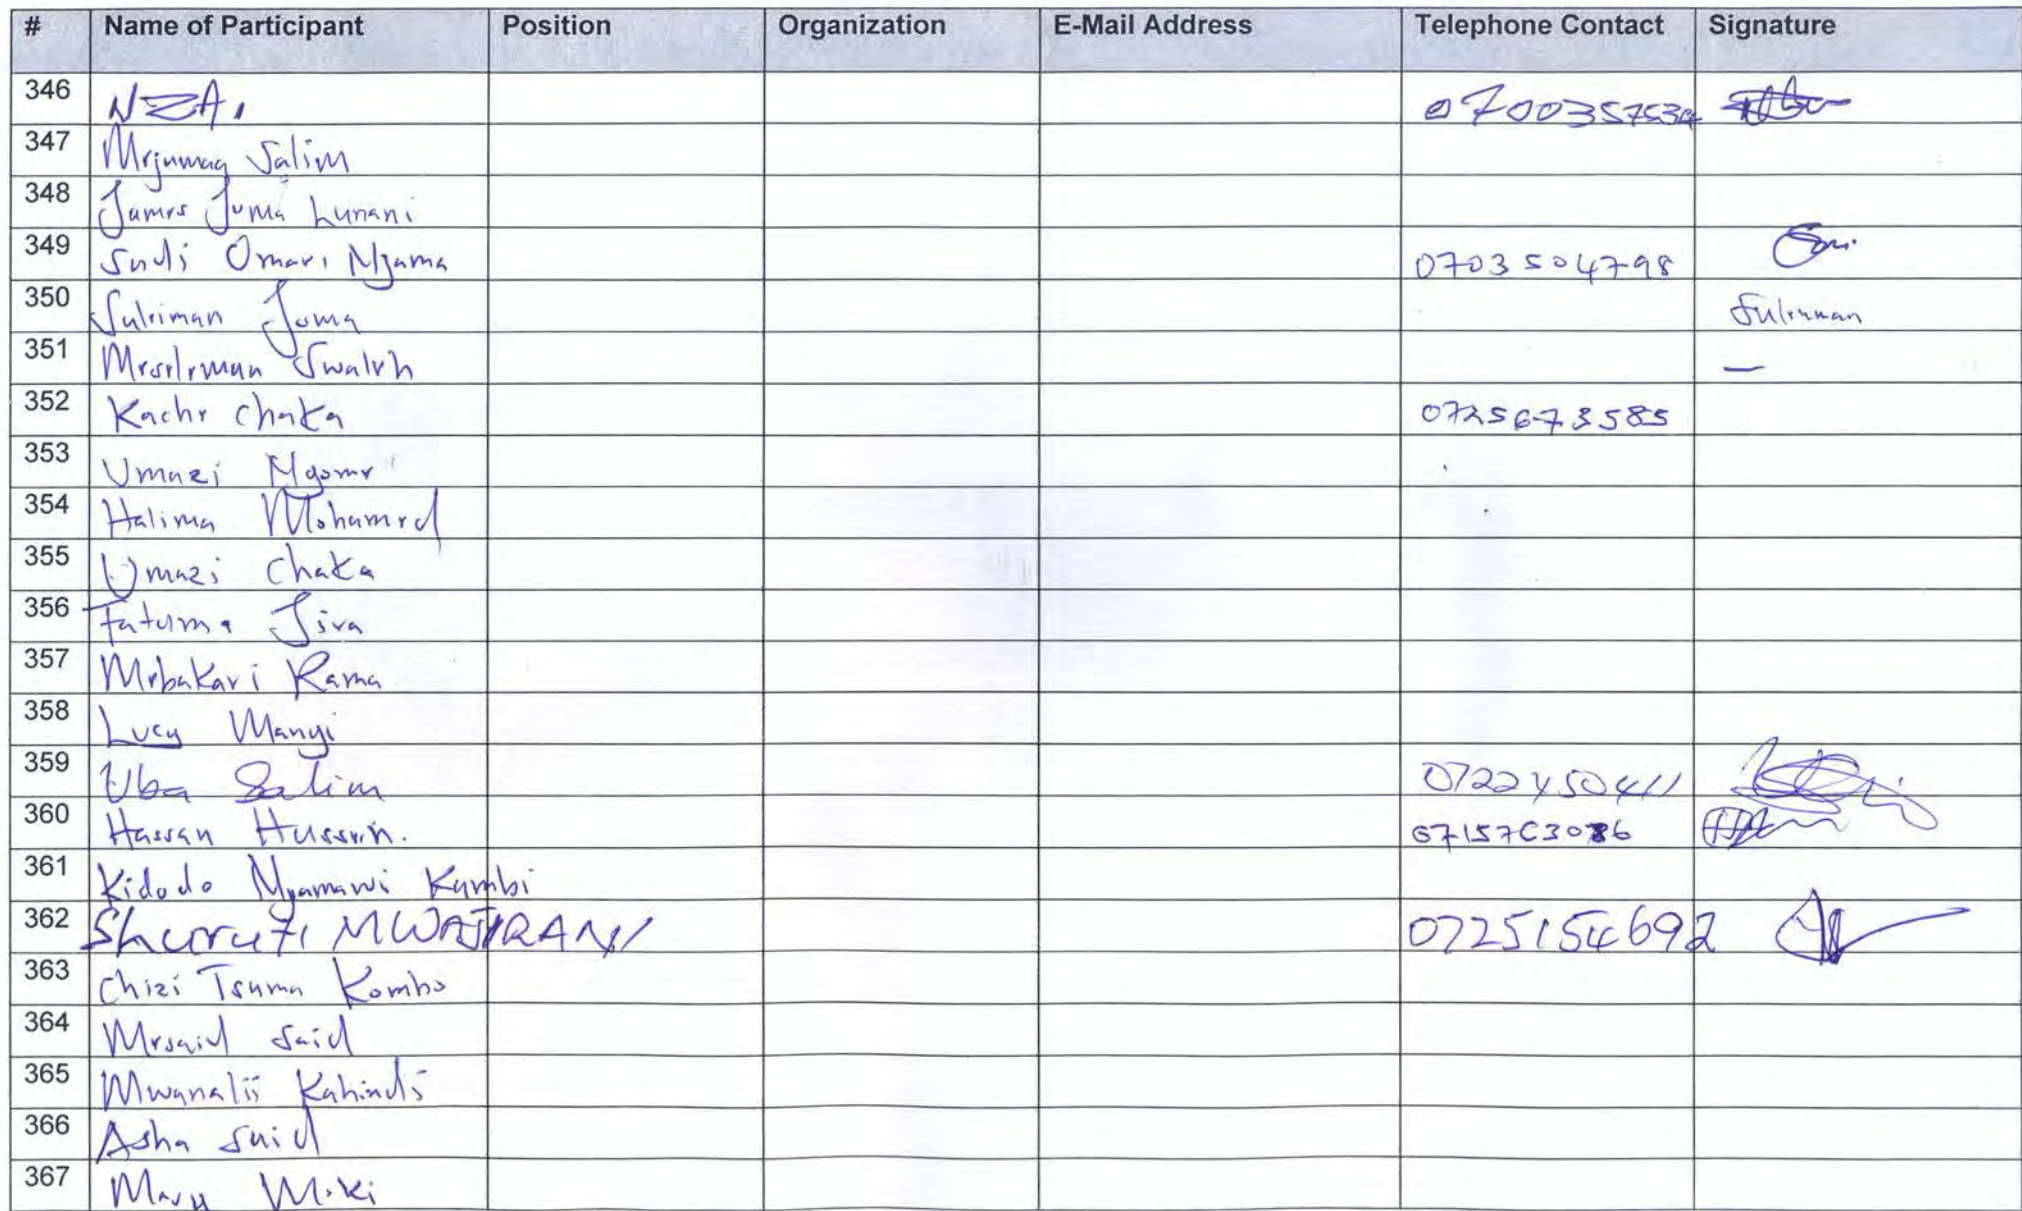 # Name of Participant Position Organization E-Mail Address Telephone Contact Signature
346 NZAI
347 Mejumaa Salim
348 James Juma Lunani
349 Sudi Omari Mjama 0703504798
350 Suleiman Juma Suleiman
351 Swaleh —
352 Kache Chaka 0725673585
353 Umazi Mgome
354 Halima Mohamed
355 Umazi Chaka
356 Fatuma Jira
357 Mebakari Rama
358 Lucy Manyi
359 Uba Salim 0722450411
360 Hassan Hussein.
361 Kidodo Nyamawi Kambi
362 MWAJIRANI 0725154692
363 Chizi Tsuma Kombo
364 Mesaid Said
365 Kahindi
366 Asha Said
367 Mary